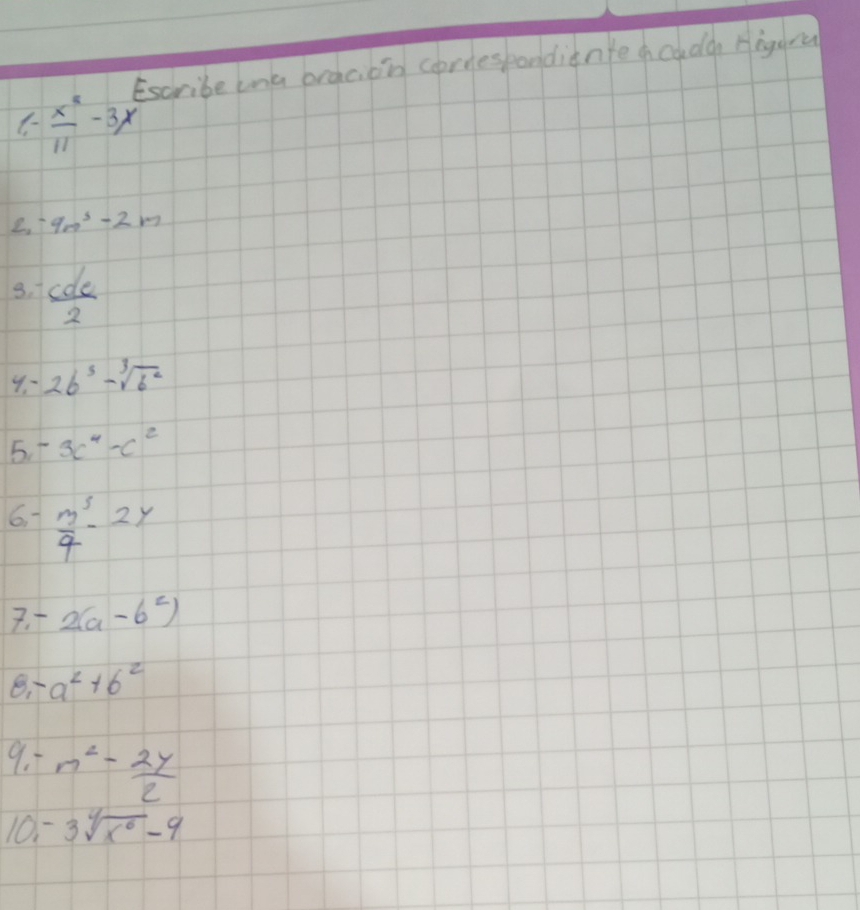 Escribe una oración correspondiente a cada Figura
1.- x²/11 - 3x
2.- 9m³ - 2m
3.- cde/2
4.- 2b³ - ∛b²
5.- 3c⁴ - c²
6.- m³/9 - 2y
7.- 2(a - b²)
8.- a² + b²
9.- m² - 2y/2
10.- 3∜x⁶ - 9